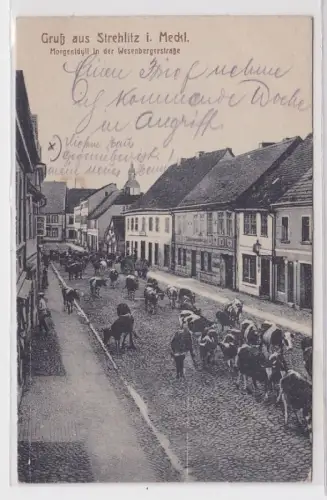 Gruß aus Strehlitz i. Meckl.
Morgenidyll in der Wesenbergerstraße
Einen Brief nehme
ich kommende Woche
in Angriff
x)
mein